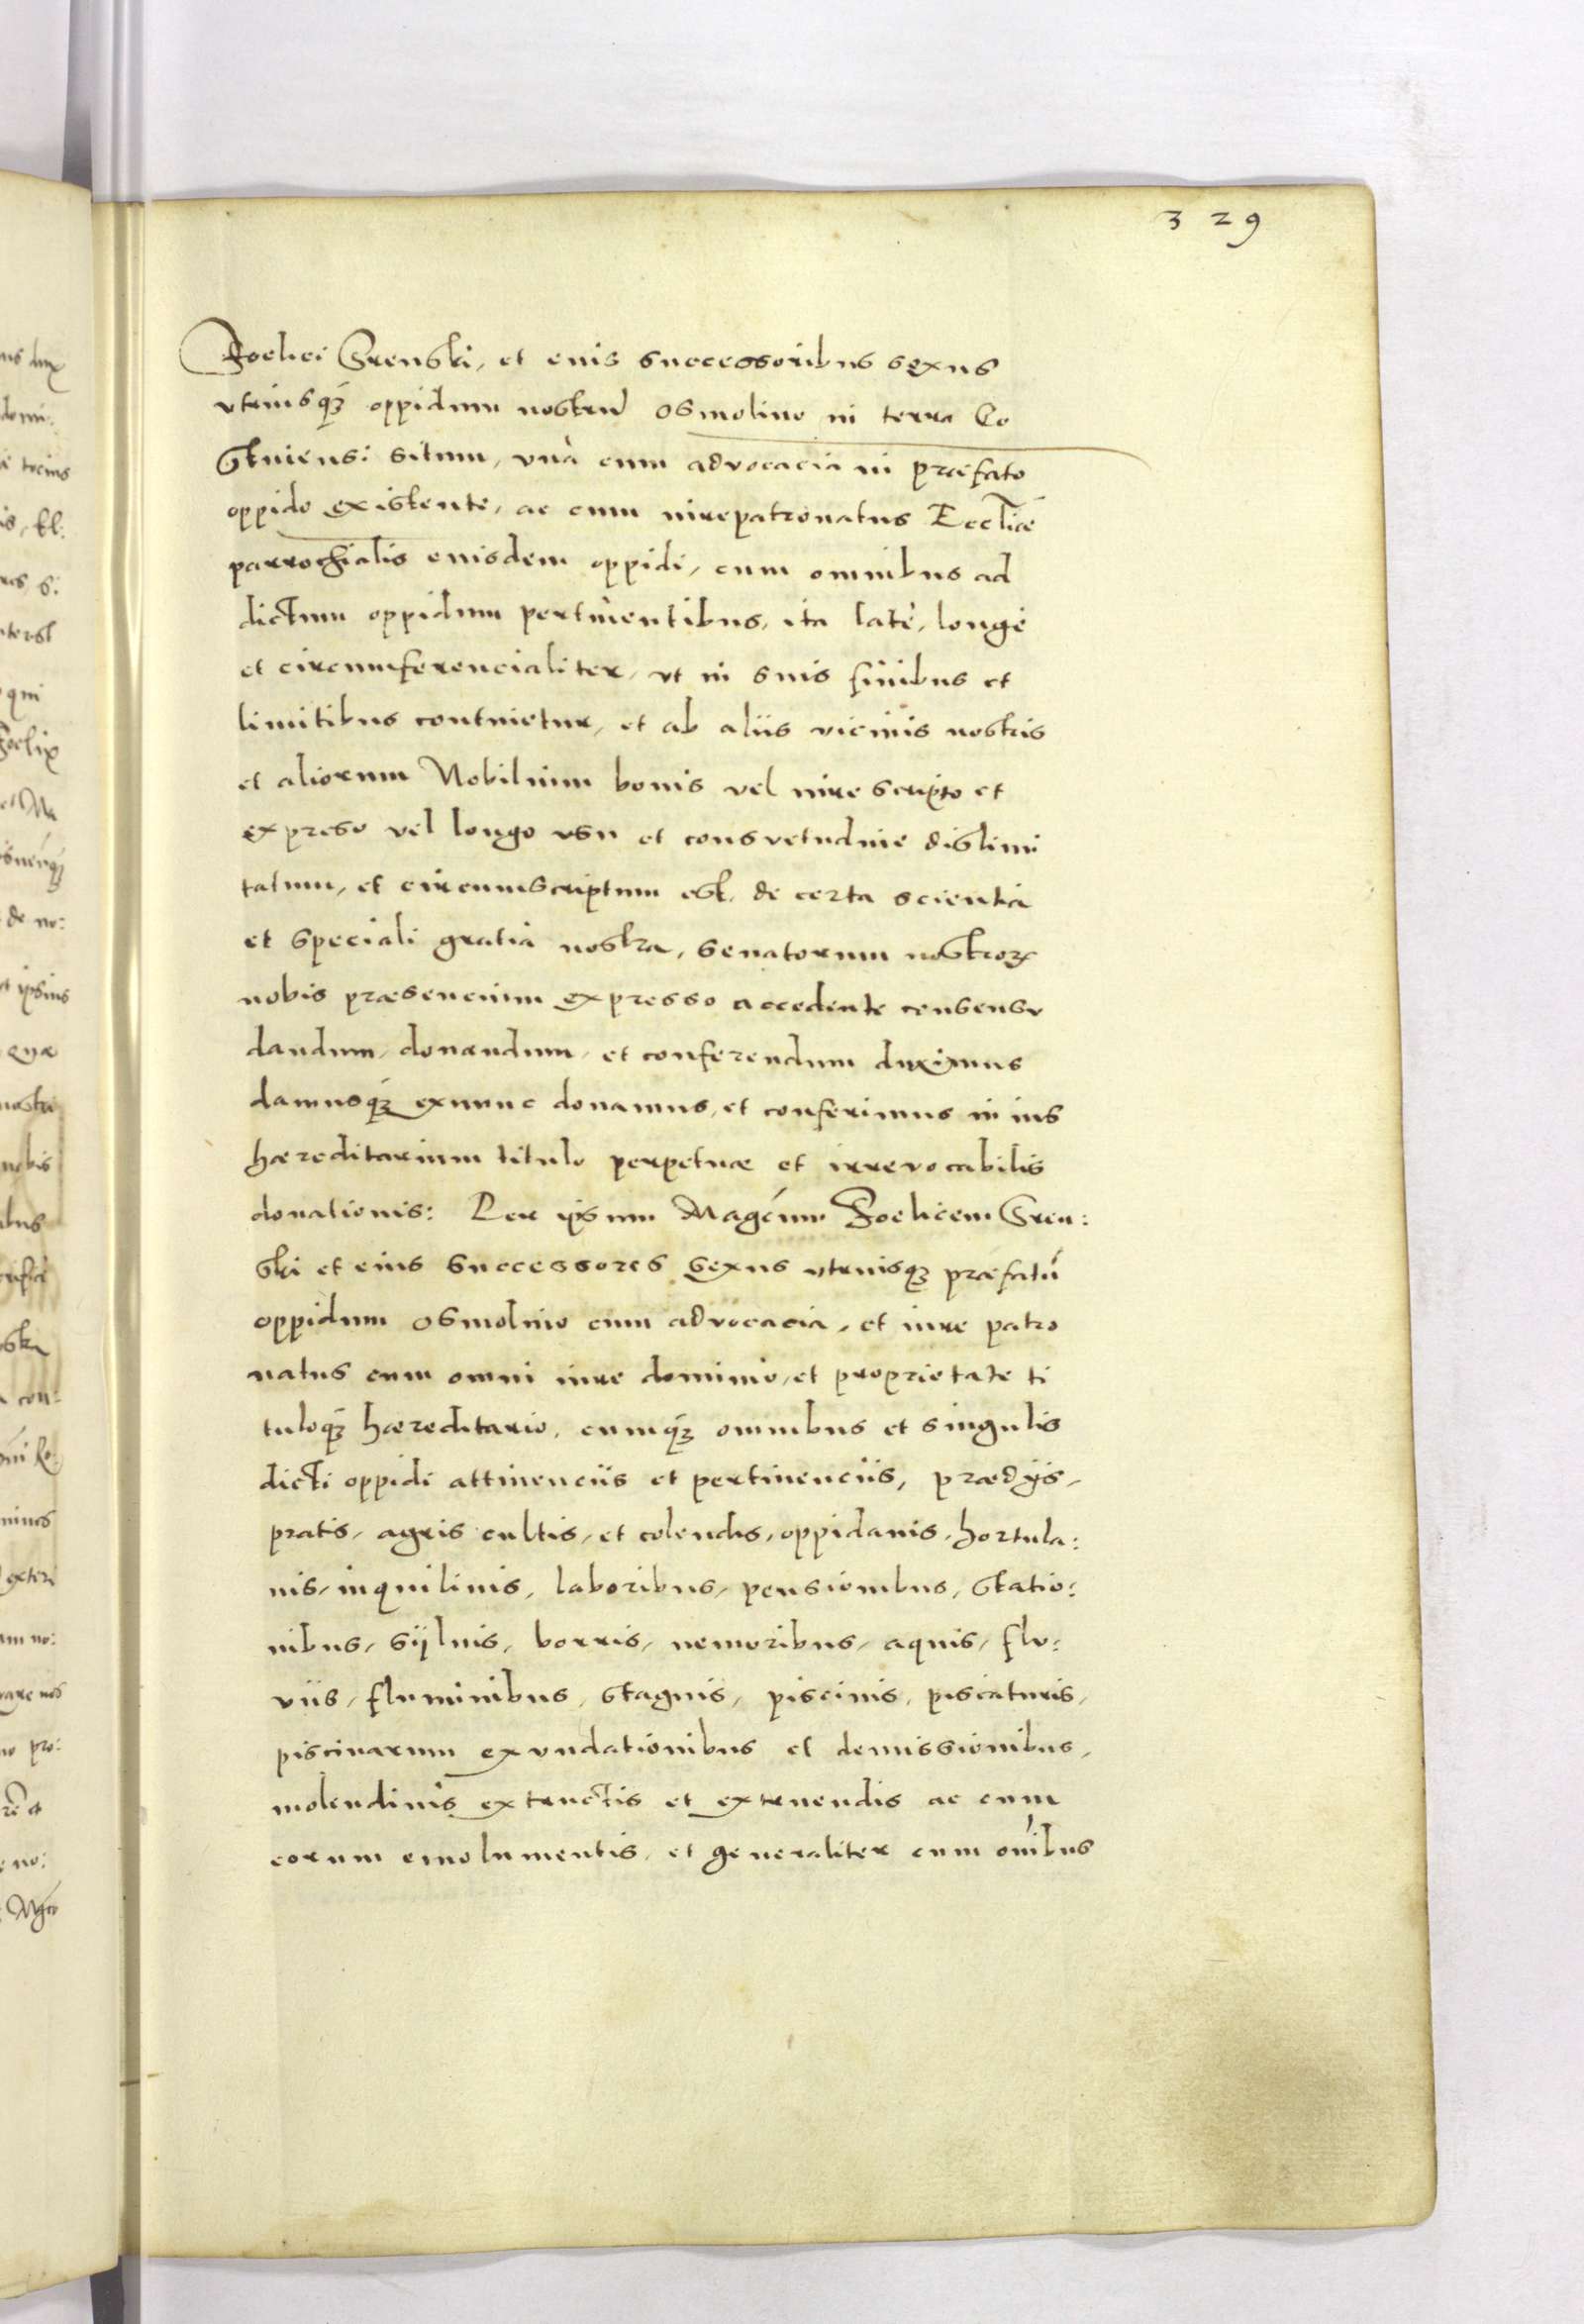 329
Foelici Srenski, et eius successoribus sexus
vtriusq₃ oppidum nostrũ osmolino in terra Go
stiniensi situm, vnà cum advocacia in præfato
oppido existente, ac cum iurepatronatus Eccłiæ
parrochialis eiusdem oppidi, cum omnibus ad
dictum oppidum pertinentibus, ita latè, longè
et circumferencialiter, vt in suis finibus et
limitibus continetur, et ab aliis vicinis nostris
et aliorum Nobilium bonis vel iure scripto et
expreso vel longo vsu et consvetudine dislimi
tatum, et circumscriptum est, de certa scientia
et speciali gratia nostra, senatorum nostroꝝ
nobis præsencium expresso accedente consensv
dandum, donandum, et conferendum duximus
damusq₃ exnunc donamus, et conferimus in ius
hæreditarium titulo perpetuæ et irrevocabilis
donationis: Per ipsum Magcũm Foelicem Sren:
ski et eius successores sexus vtriusq₃ præfatũ
oppidum osmolino cum advocacia, et iure patro
natus cum omni iure dominio, et proprietate ti
tuloq₃ hæreditario, cumq₃ omnibus et singulis
dicti oppidi attinenciis et pertinenciis, prædijs,
pratis, agris cultis, et colendis, oppidanis, hortula:
nis, inquilinis, laboribus, pensionibus, statio:
nibus, sijluis, borris, nemoribus, aquis, flv:
viis, fluminibus, stagnis, piscinis, piscaturis,
piscinarum exvndationibus et demissionibus,
molendinis extructis et extruendis ac cum
eorum emolumentis, et generaliter cum om̃ibus